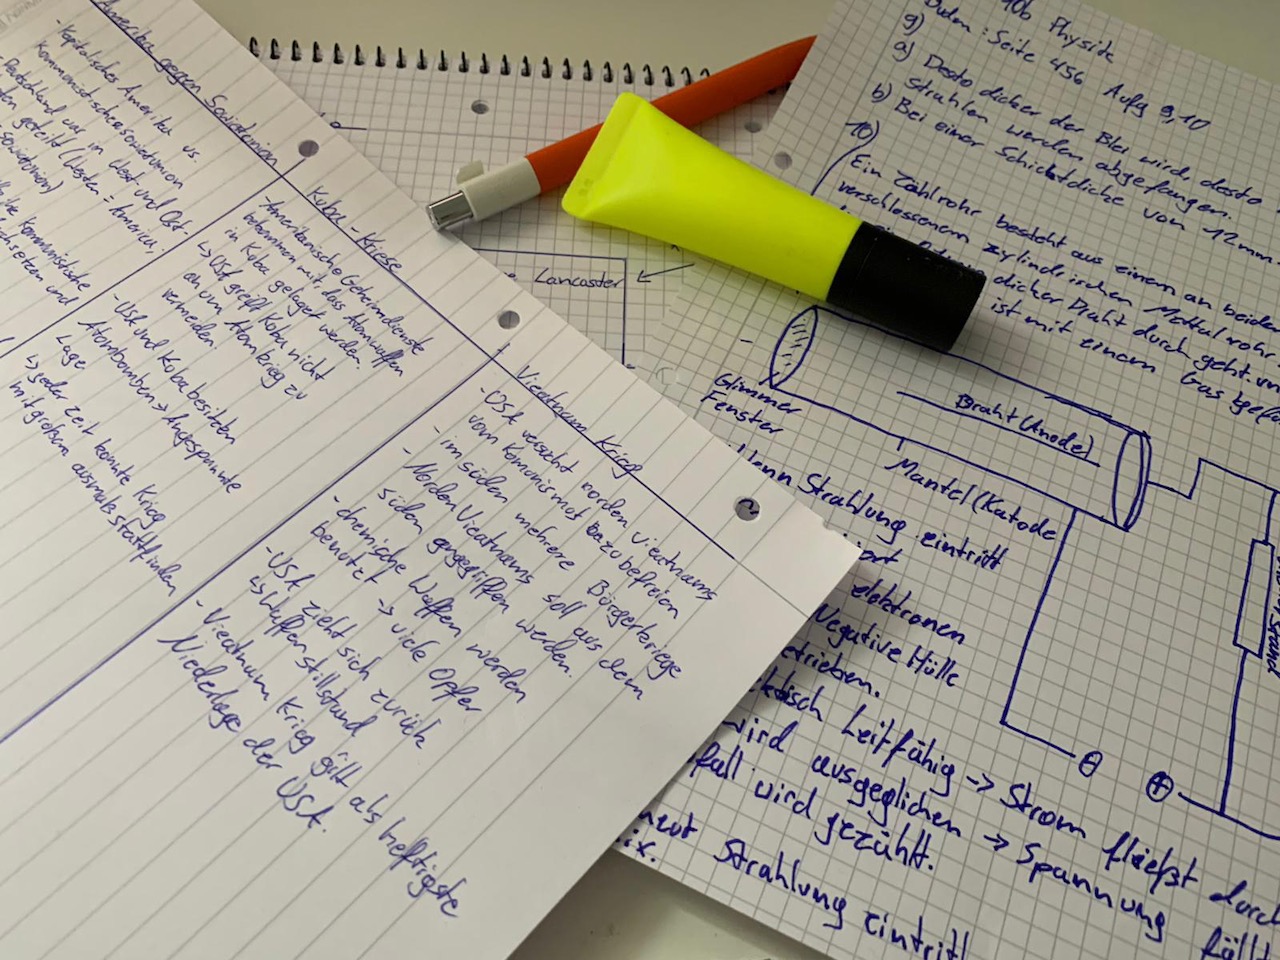 Amerika gegen Sozialismus
- Kapitalisches Amerika vs.
Kommunistischer Sowietunion
- Deutschland war in West und Ost-
geteilt (Westen = Amerika,
Sowietunion)
Kommunistische
setzen und
Kuba-Kriese
- Amerikanische Geheimdienste
bekommen mit, dass Atomwaffen
in Kuba gelagert werden.
↳ USA greift Kuba nicht
an um Atomkrieg zu
vermeiden
- USA und Kuba besitzen
Atombomben → Angespannte
Lage
↳ jeder Zeit konnte Krieg
mit großem ausmaß stattfinden
Vieatnam Krieg
- USA versucht norden vieatnams
vom Komonismus zu befreien
- im süden mehrere Bürgerkriege
- Norden Vieatnams soll aus dem
süden angegriffen werden.
- chemische Waffen werden
benutzt → viele Opfer
- USA zieht sich zurück
↳ Waffenstillstand
- Vieatnam Krieg gilt als heftigste
Niederlage der USA.
Lancaster
10b Physik
Seite 456 Aufg 9,10
9)
a) Desto dicker der Blei wird, desto
Strahlen werden abgefangen.
b) Bei einer Schichtdicke von 12mm
10)
Ein Zählrohr besteht aus einem an beiden
verschlossenem zylindrischen Metallrohr
dicker Draht durch geht
ist mit einem Gas
-
Glimmer
Fenster
Draht (Anode)
Mantel (Katode
Wenn Strahlung eintritt
elektronen
Negative Hülle
getrieben.
Leitfähig → Strom fließt durch
wird ausgeglichen → Spannung fällt
wird gezählt.
Strahlung eintritt
⊖
⊕